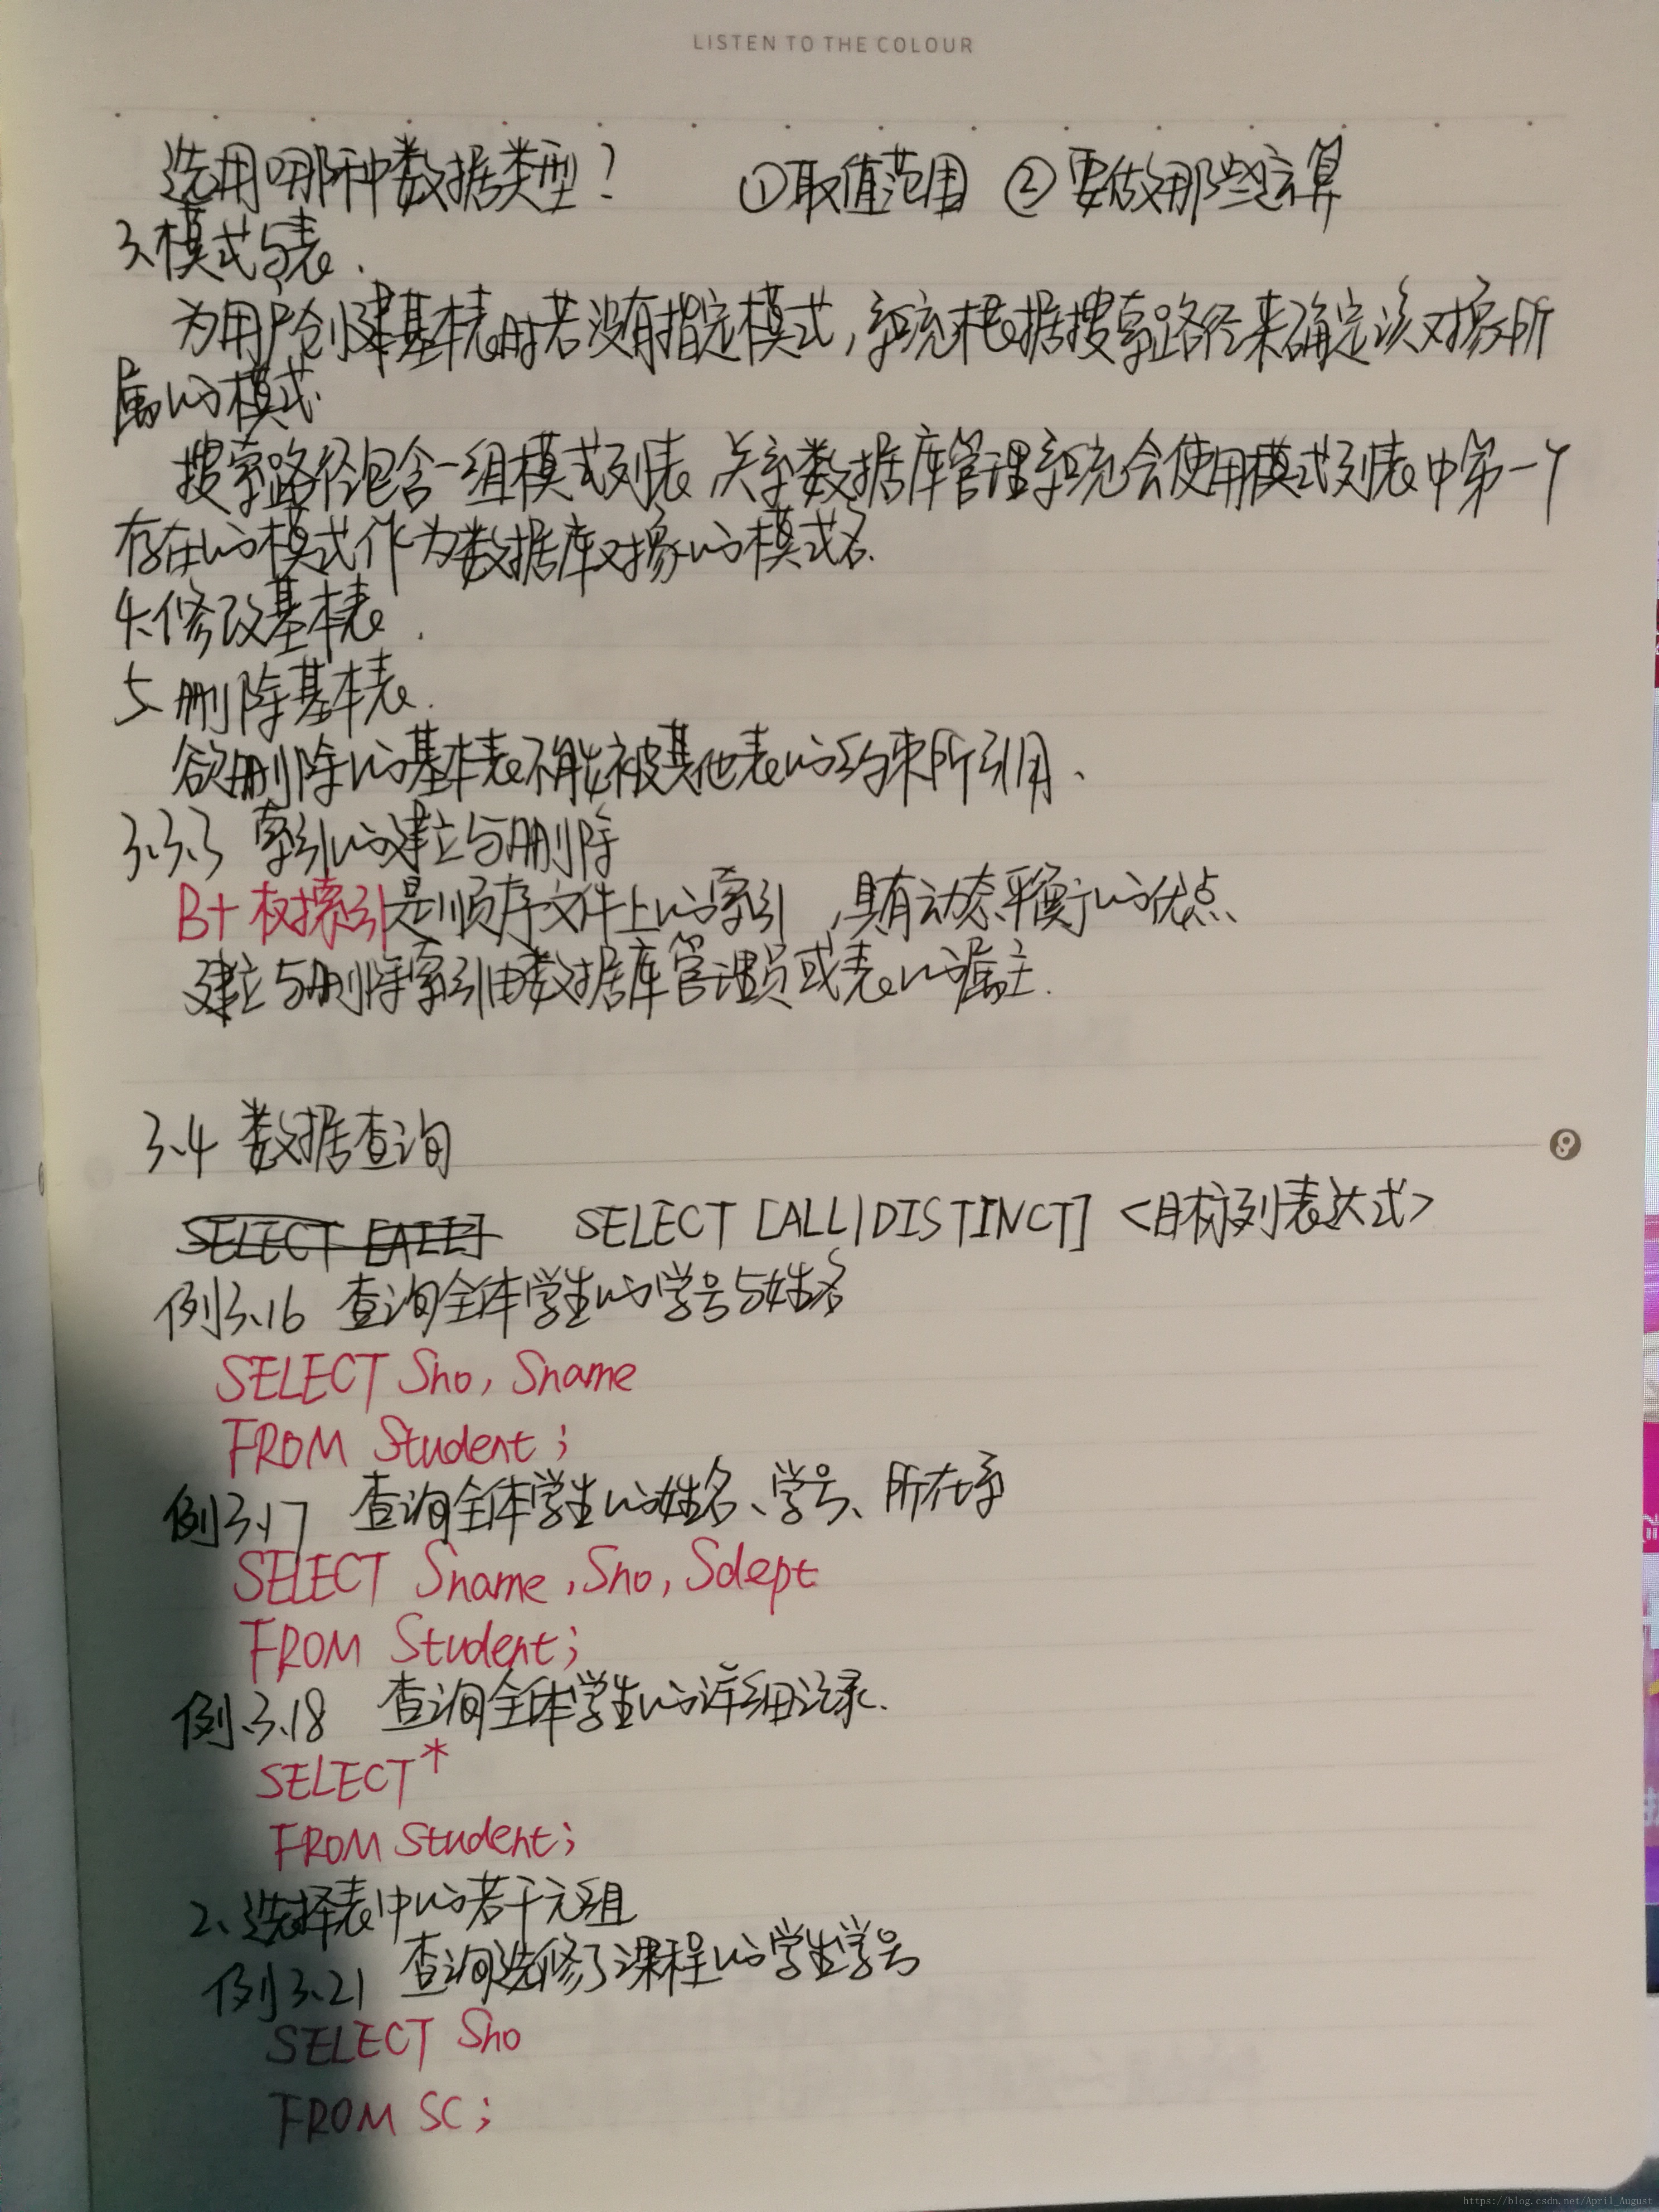 LISTEN TO THE COLOUR
选用哪种数据类型? ①取值范围 ②要做那些运算
3、模式与表.
为用户创建基本表时若没有指定模式,系统根据搜索路径来确定该对象所
属的模式.
搜索路径包含一组模式列表,关系数据库管理系统会使用模式列表中第一个
存在的模式作为数据库对象的模式名.
4、修改基本表.
5、删除基本表.
欲删除的基本表不能被其他表的约束所引用、
3.3.3 索引的建立与删除
B+树索引是顺序文件上的索引,具有动态平衡的优点、
建立与删除索引由数据库管理员或表的属主.
3.4 数据查询
SELECT [ALL] SELECT [ALL|DISTINCT] <目标列表达式>
例3.16 查询全体学生的学号与姓名
SELECT Sno, Sname
FROM Student;
例3.17 查询全体学生的姓名、学号、所在系
SELECT Sname, Sno, Sdept
FROM Student;
例3.18 查询全体学生的详细记录.
SELECT *
FROM Student;
2、选择表中的若干元组
例3.21 查询选修了课程的学生学号
SELECT Sno
FROM SC;
https://blog.csdn.net/April_August